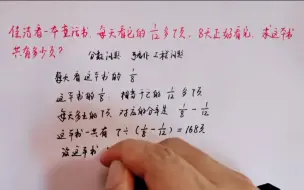 佳洁看一本童话书，每天看它的1/12多7页，8天正好看完，求这本书
共有多少页？
分数问题
工程问题
每天看这本书的 1/8
这本书的 1/8 相当于它的 1/12 多7页
每天多看的7页 对应的分率是 1/8 - 1/12
这本书一共有 7÷(1/8-1/12)=168页
设这本书